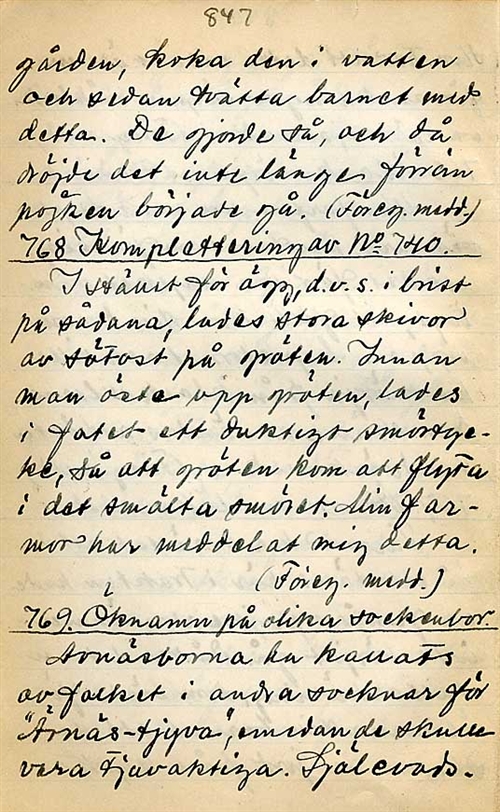 847
gården, koka den i vatten
och sedan tvätta barnet med
detta. De gjorde så, och då
dröjde det inte länge förrän
pojken började gå. (Föreg. medd.)
768 Komplettering av No 740.
I stället för ägg, d.v.s. i brist
på sådana, lades stora skivor
av sötost på gröten. Innan
man öste upp gröten, lades
i fatet ett duktigt smörtyc-
ke, så att gröten kom att flyta
i det smälta smöret. Min far-
mor har meddelat mig detta.
(Föreg. medd.)
769. Öknamn på olika sockenbor.
Arnäsborna ha kallats
av folket i andra socknar för
"Arnäs-tjyva", emedan de skulle
vara tjuvaktiga. Själevads-